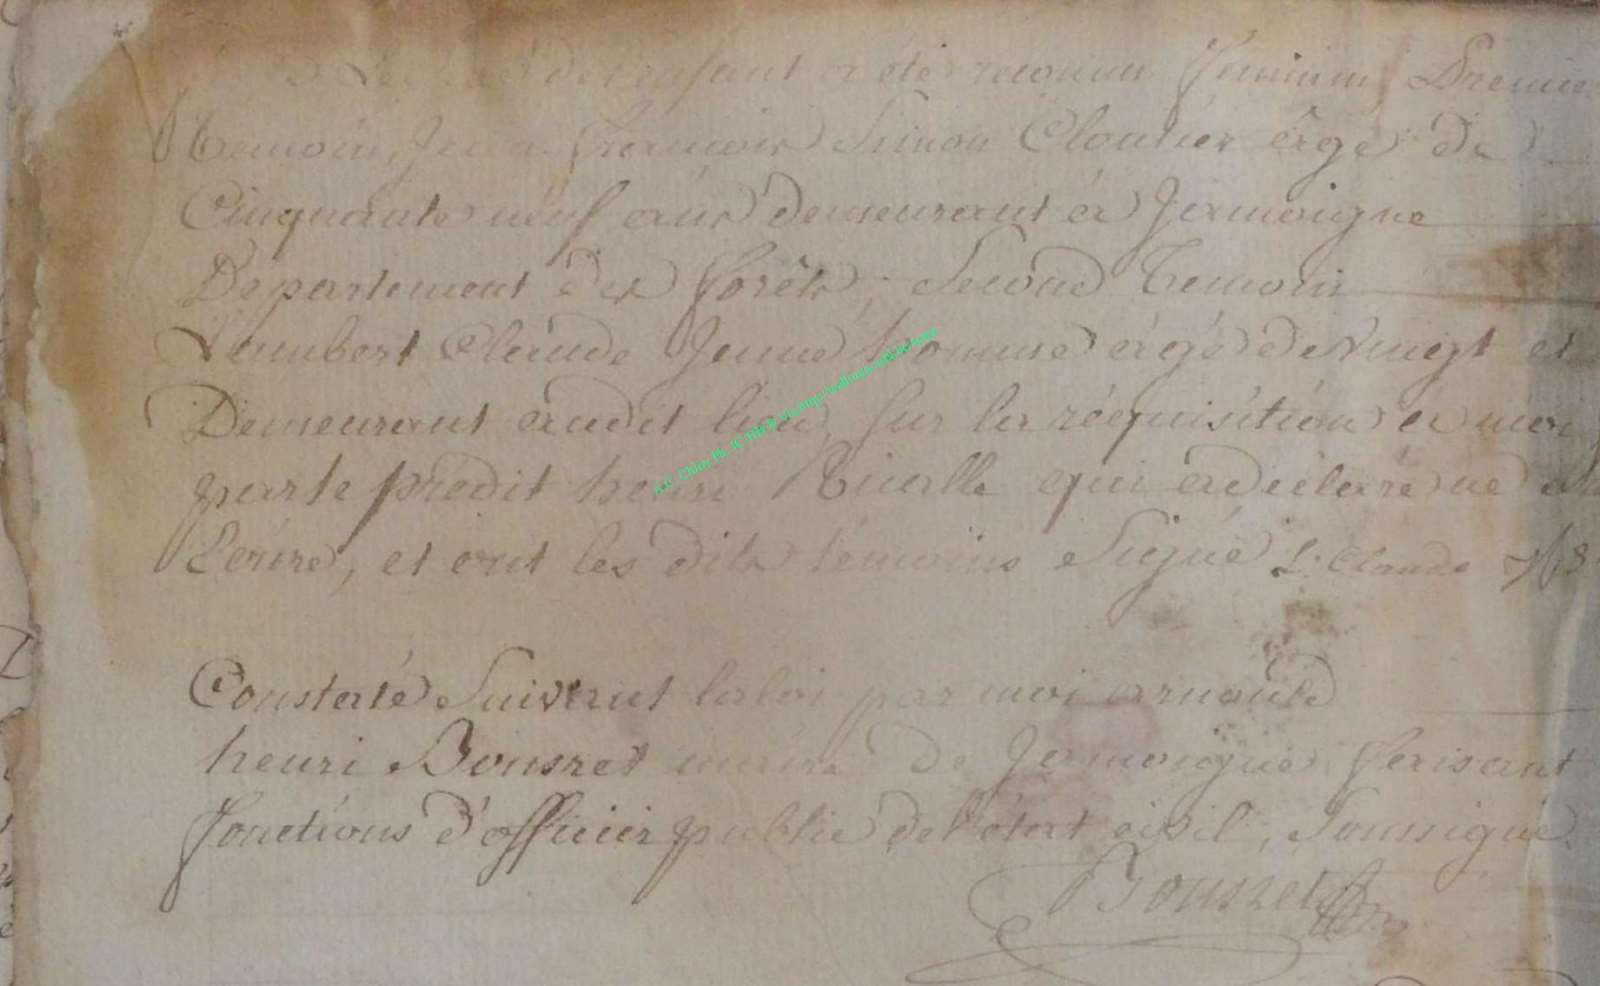 Le sexe de l'enfant a été reconnu féminin, Premier
Temoin, Jean françois Simon Cloutier âgé de
Cinquante neuf ans demeurant à Jamoigne
Departement des forêts, Second Temoin
Lambert Claude Jeune homme âgé de vingt et
Demeurant audit lieu, sur la réquisition à moi
par le predit henri qui a déclaré ne
Ecrire, et ont les dits témoins Signé L. Claude
Constaté Suivant la loi par moi arnould
henri Bousret maire de Jamoigne faisant
fonctions d'officier public de l'état civil, Soussigné
Bousret